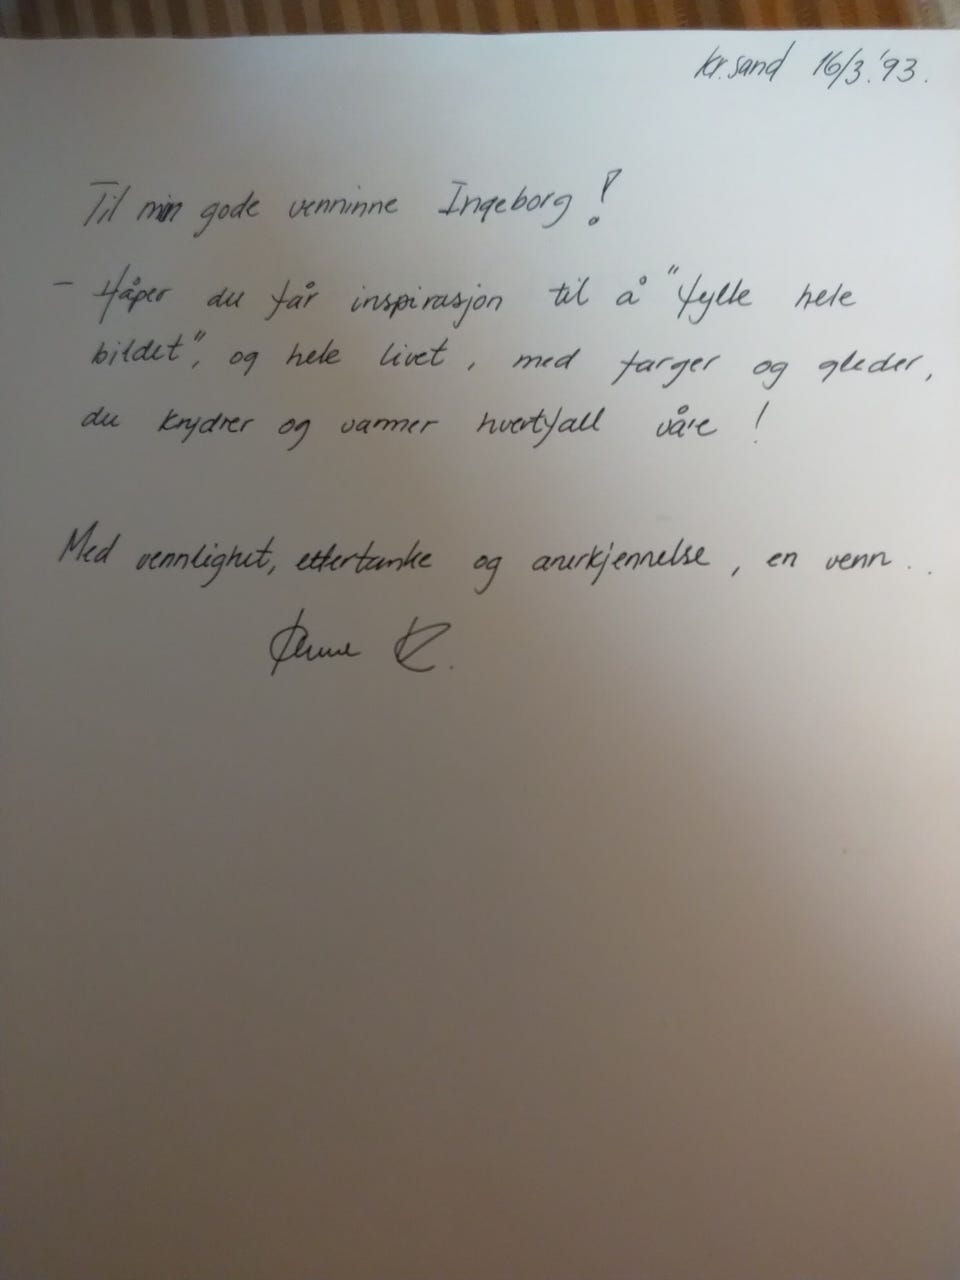 Kr.sand 16/3.'93.
Til min gode venninne Ingeborg!
- Håper du får inspirasjon til å "fylle hele
bildet", og hele livet, med farger og gleder,
du krydrer og varmer hvertfall våre!
Med vennlighet, ettertanke og anerkjennelse, en venn..
K.